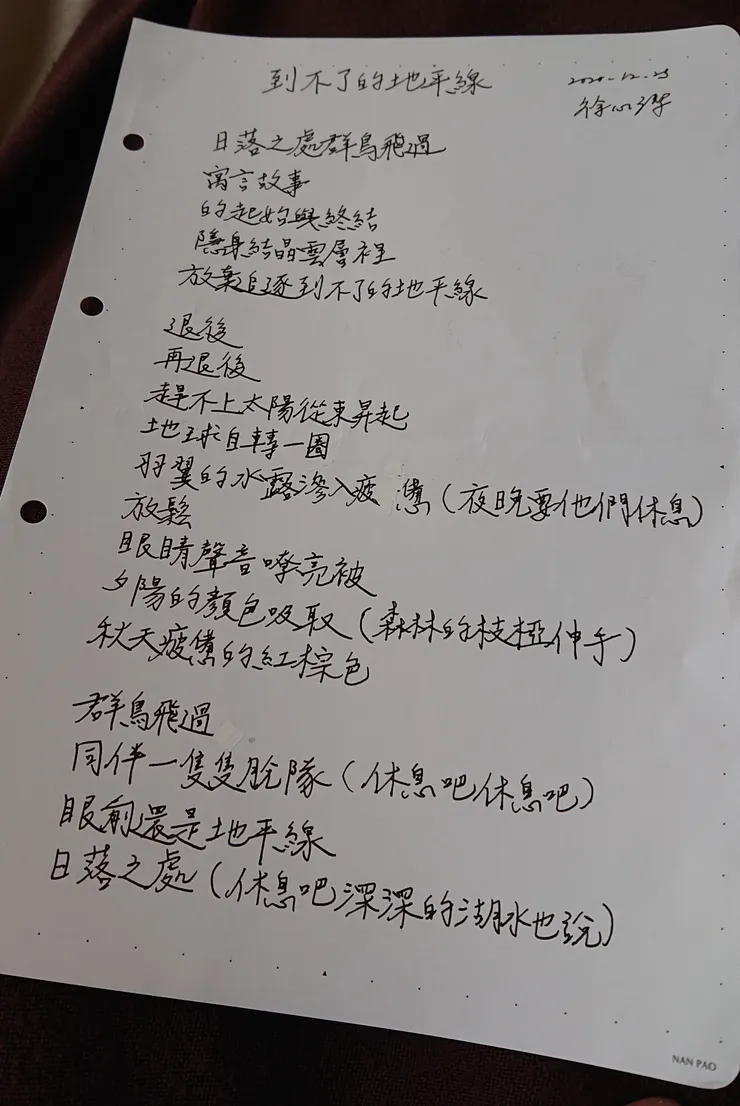 到不了的地平線
2020-12-23
徐心
日落之處群鳥飛過
寓言故事
的起始與終結
隱身結晶雲層裡
放棄追逐到不了的地平線
退後
再退後
趕不上太陽從東昇起
地球自轉一圈
羽翼的水露滲入疲憊(夜晚要他們休息)
放鬆
眼睛聲音嘹亮被
夕陽的顏色吸取(森林的枝椏伸手)
秋天疲憊的紅棕色
群鳥飛過
同伴一隻隻脫隊(休息吧休息吧)
眼前還是地平線
日落之處(休息吧深深的湖水也說)
NAN PAO